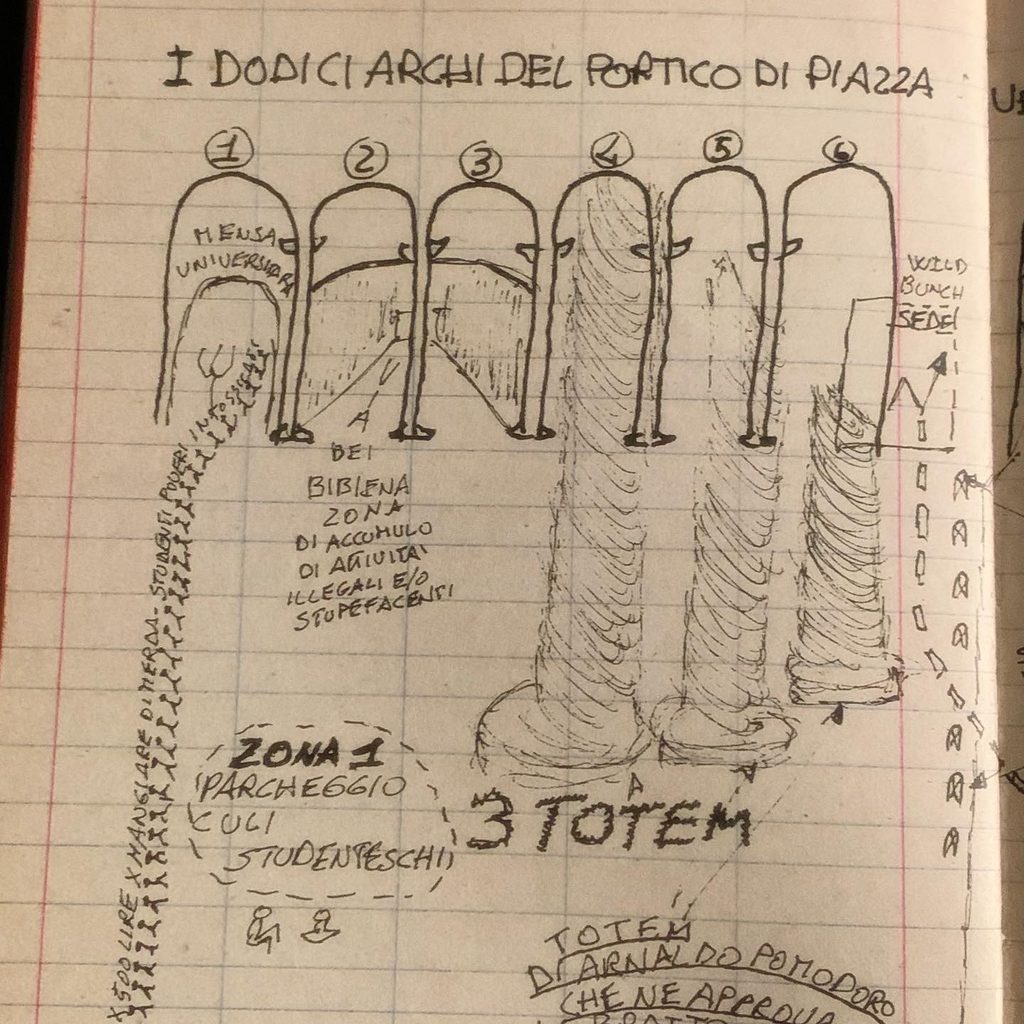 I DODICI ARCHI DEL PORTICO DI PIAZZA
1 2 3 4 5 6
MENSA
UNIVERSITARIA
WILD
BUNCH
SEDE
A
BEI
BIBIENA
ZONA
DI ACCUMULO
DI ATTIVITA'
ILLEGALI E/O
STUPEFACENTI
X 500 LIRE X MANGIARE DI MERDA - STUDENTI POVERI INTOSSICATI
ZONA 1
PARCHEGGIO
CULI
STUDENTESCHI
3 TOTEM
TOTEM
DI ARNALDO POMODORO
CHE NE APPROVA